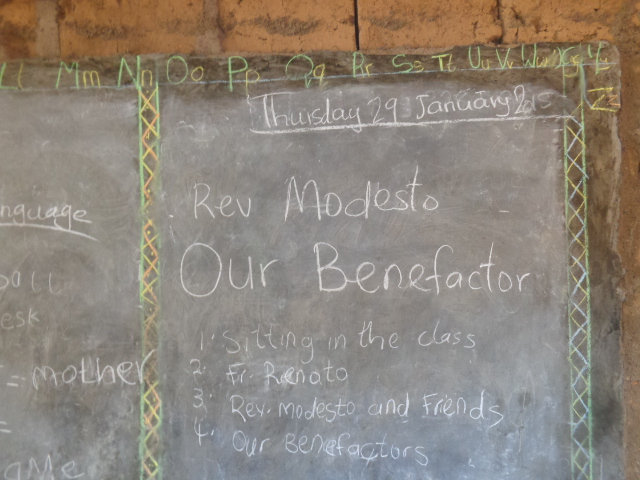 Ll Mm Nn Oo Pp Qq Rr Ss Tt Uu Vv Ww Xx Yy
Zz
Thursday 29 January 2015
Rev Modesto
Our Benefactor
1. Sitting in the class
2. Fr. Renato
3. Rev. Modesto and Friends
4. Our Benefactors
nguage
ball
esk
= mother
=
gMe